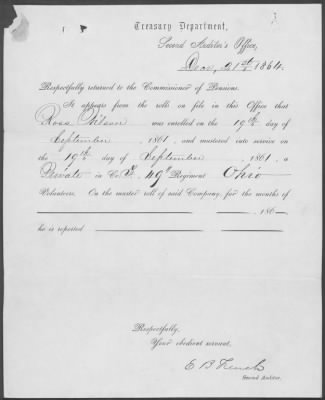 Treasury Department,
Second Auditor's Office,
Dec. 21st 1864.
Respectfully returned to the Commissioner of Pensions.
It appears from the rolls on file in this Office that
Ross Wilson was enrolled on the 19th day of
September, 1861, and mustered into service on
the 19th day of September, 1861, a
Private in Co. 49th Regiment Ohio
Volunteers. On the muster roll of said Company, for the months of
186
he is reported
Respectfully,
Your obedient servant,
E B French
Second Auditor.